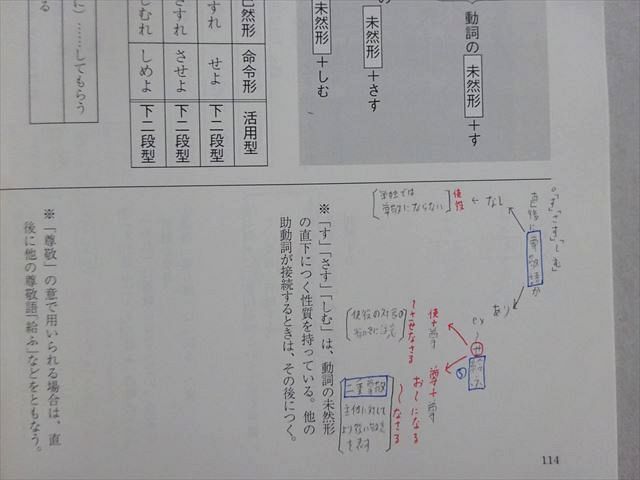 動詞の 未然形 ＋す
未然形 ＋さす
未然形 ＋しむ
活用型
下二段型
下二段型
下二段型
命令形
せよ
させよ
しめよ
已然形
すれ
さすれ
しむれ
に）……してもらう
る
。「す」「さす」「しむ」
直後に 尊敬語 が
なし
使役
単独では
尊敬にならない
あり
ex)
せ 給ふ
使＋尊
〜させなさる
使役の対象の
有無に注意
尊＋尊
お〜になる
〜なさる
二重尊敬
主体に対して
より強い敬意
を表す
※「す」「さす」「しむ」は、動詞の未然形
の直下につく性質を持っている。他の
助動詞が接続するときは、その後につく。
※「尊敬」の意で用いられる場合は、直
後に他の尊敬語「給ふ」などをともなう。
114